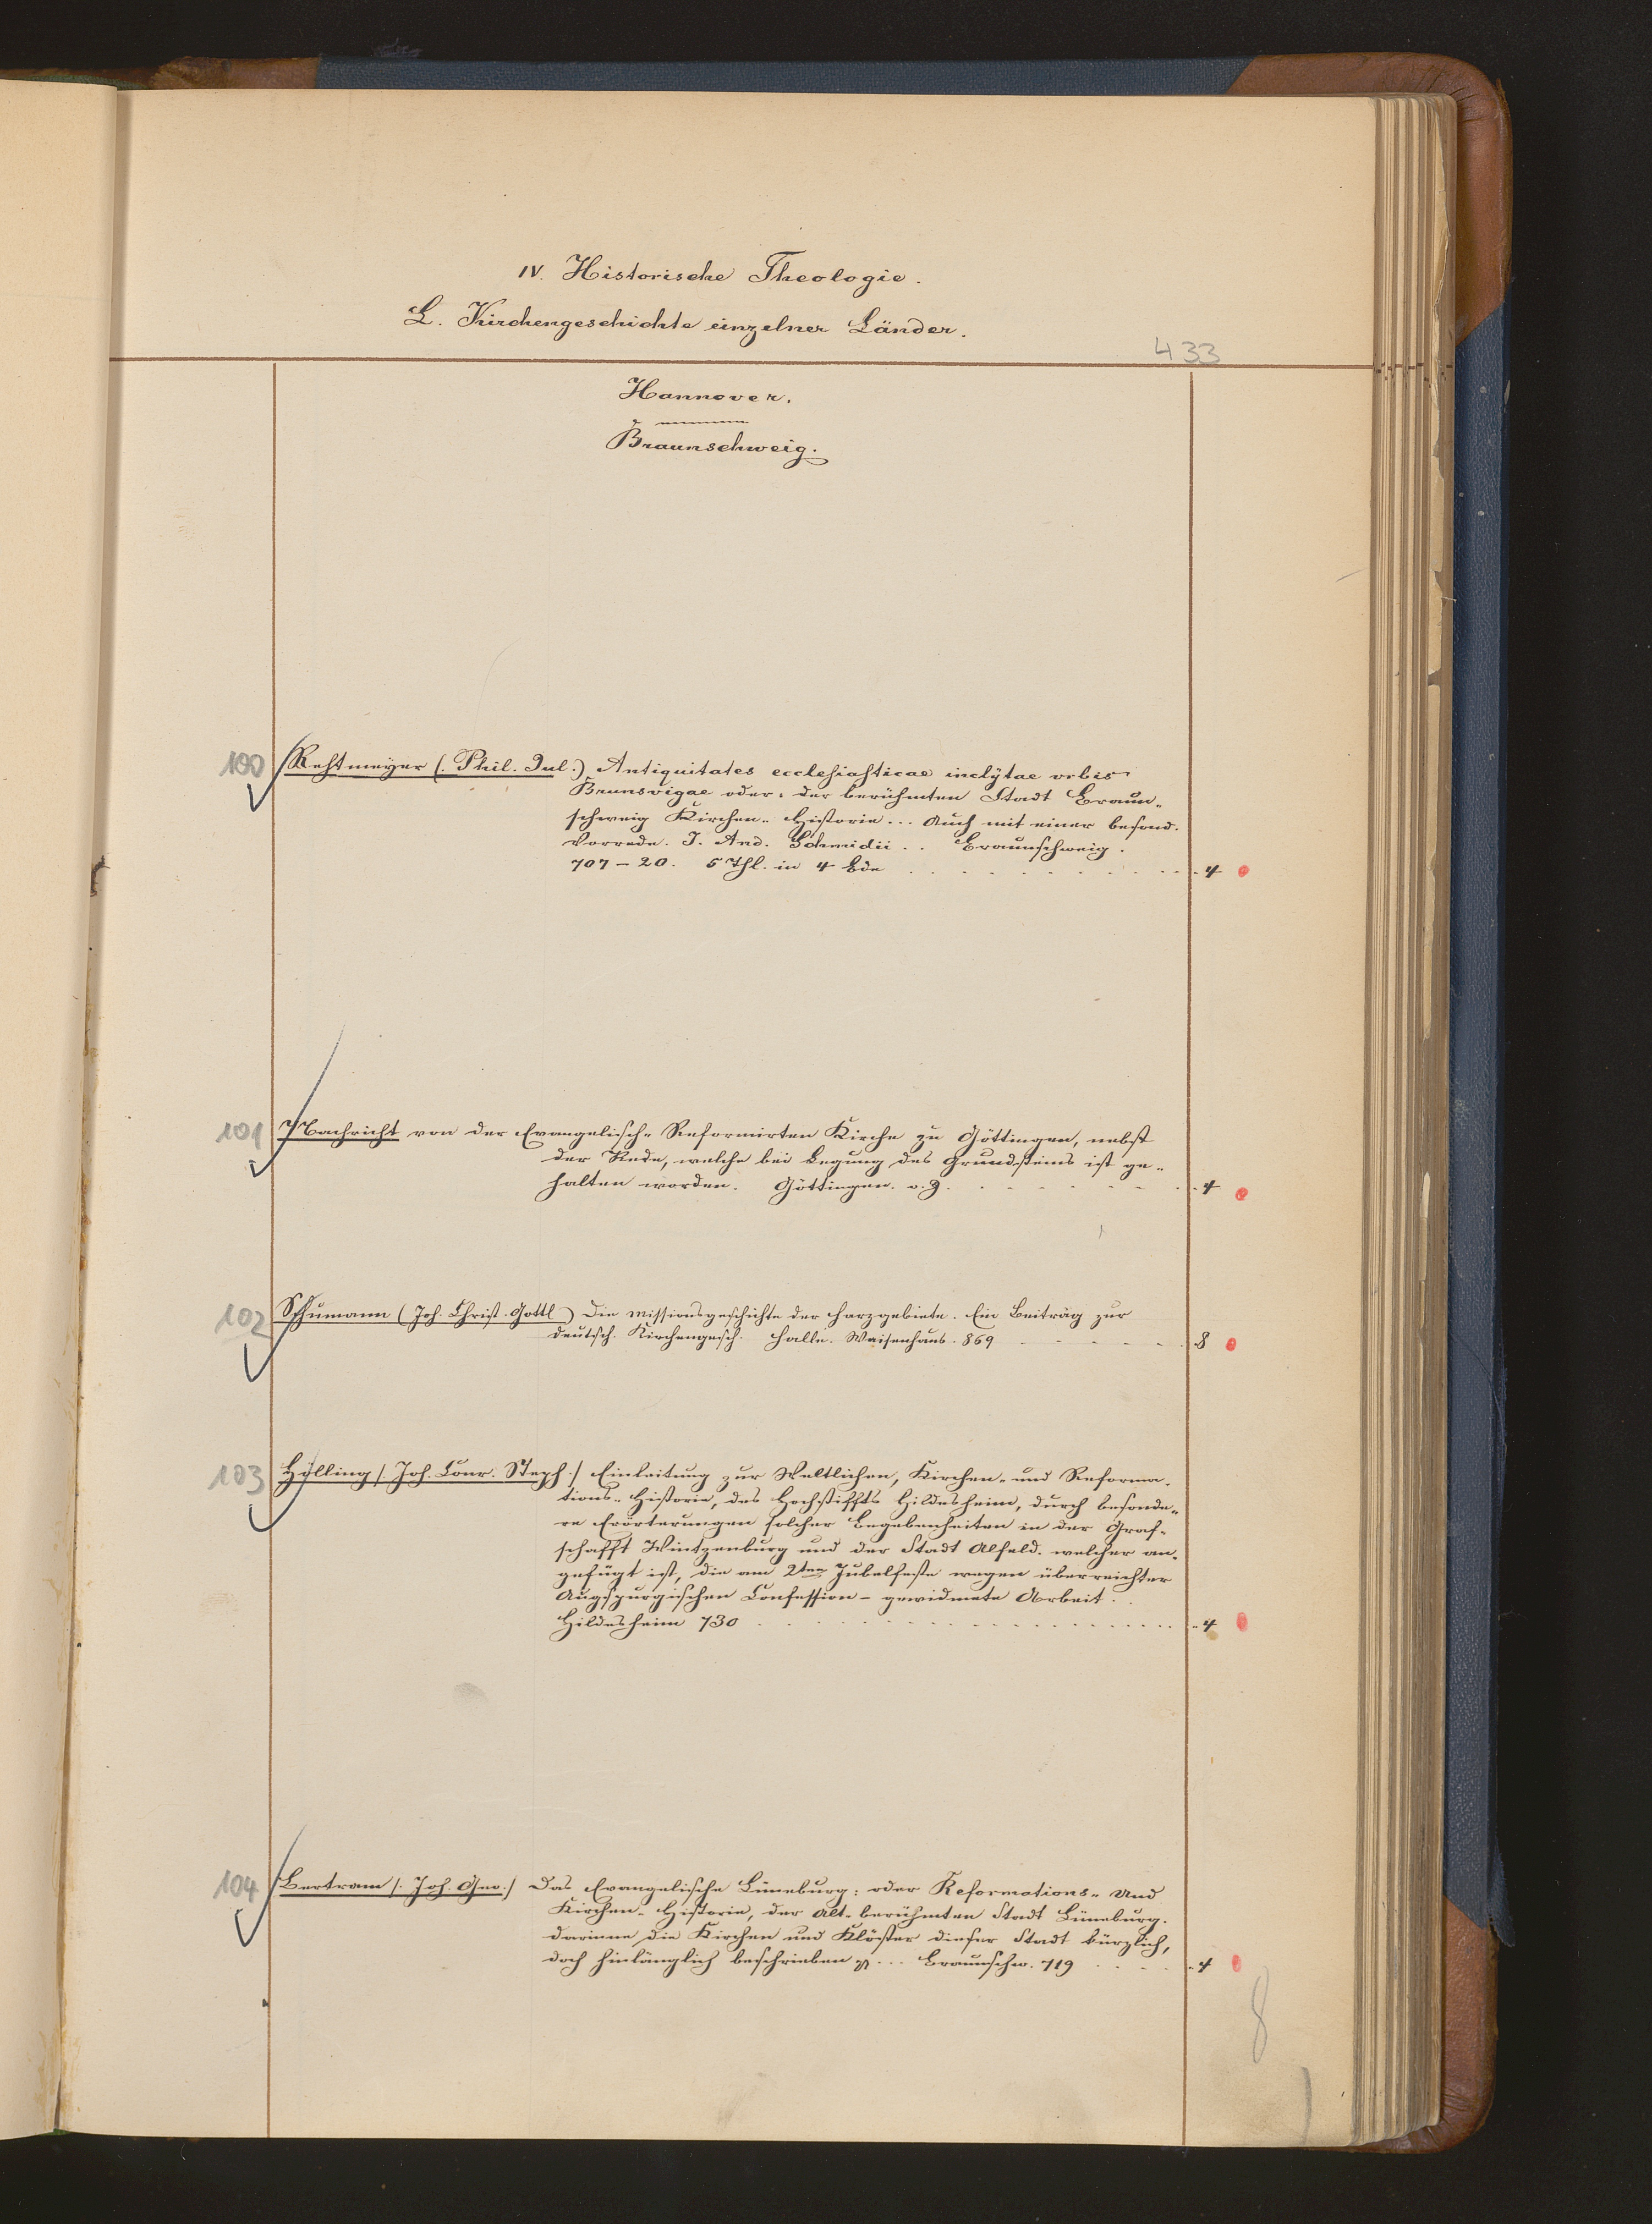 IV. Historische Theologie.
L. Kirchengeschichte einzelner Länder.
433
Hannover.
Braunschweig.
100 Rehtmeyer (. Phil. Jul.) Antiquitates ecclesiasticae inclytae urbis
Brunsvigae oder: der berühmten Stadt Braun-
schweig Kirchen-Historie... Auch mit einer besond.
Vorrede. J. And. Schmidii.. Braunschweig.
707-20. 5 Thl. in 4 Bde 4
101 Nachricht von der Evangelisch-Reformirten Kirche zu Göttingen, nebst
der Rede, welche bei Legung des Grundsteins ist ge-
halten worden. Göttingen. o. J. 4
102 Schumann (Joh. Christ. Gottl) Die Missionsgeschichte der Harzgebiete. Ein Beitrag zur
deutsch. Kirchengesch. Halle. Waisenhaus. 869 8
103 Hölling /. Joh. Conr. Steph./ Einleitung zur Weltlichen, Kirchen- und Reforma-
tions-Historie, des Hochstiffts Hildesheim, durch besonde-
re Erörterungen solcher Begebenheiten in der Graf-
schafft Wintzenburg und der Stadt Alfeld. welcher an-
gefügt ist, die am 2ten Jubelfeste wegen überreichter
Augspurgischen Confession - gewidmete Arbeit..
Hildesheim 730 4
104 Bertram /. Joh. Geo./ Das Evangelische Lüneburg: oder Reformations- Und
Kirchen-Historie, der Alt-berühmten Stadt Lüneburg.
darinne die Kirchen und Klöster dieser Stadt kürzlich,
doch hinlänglich beschrieben ... Braunschw. 719 4
8